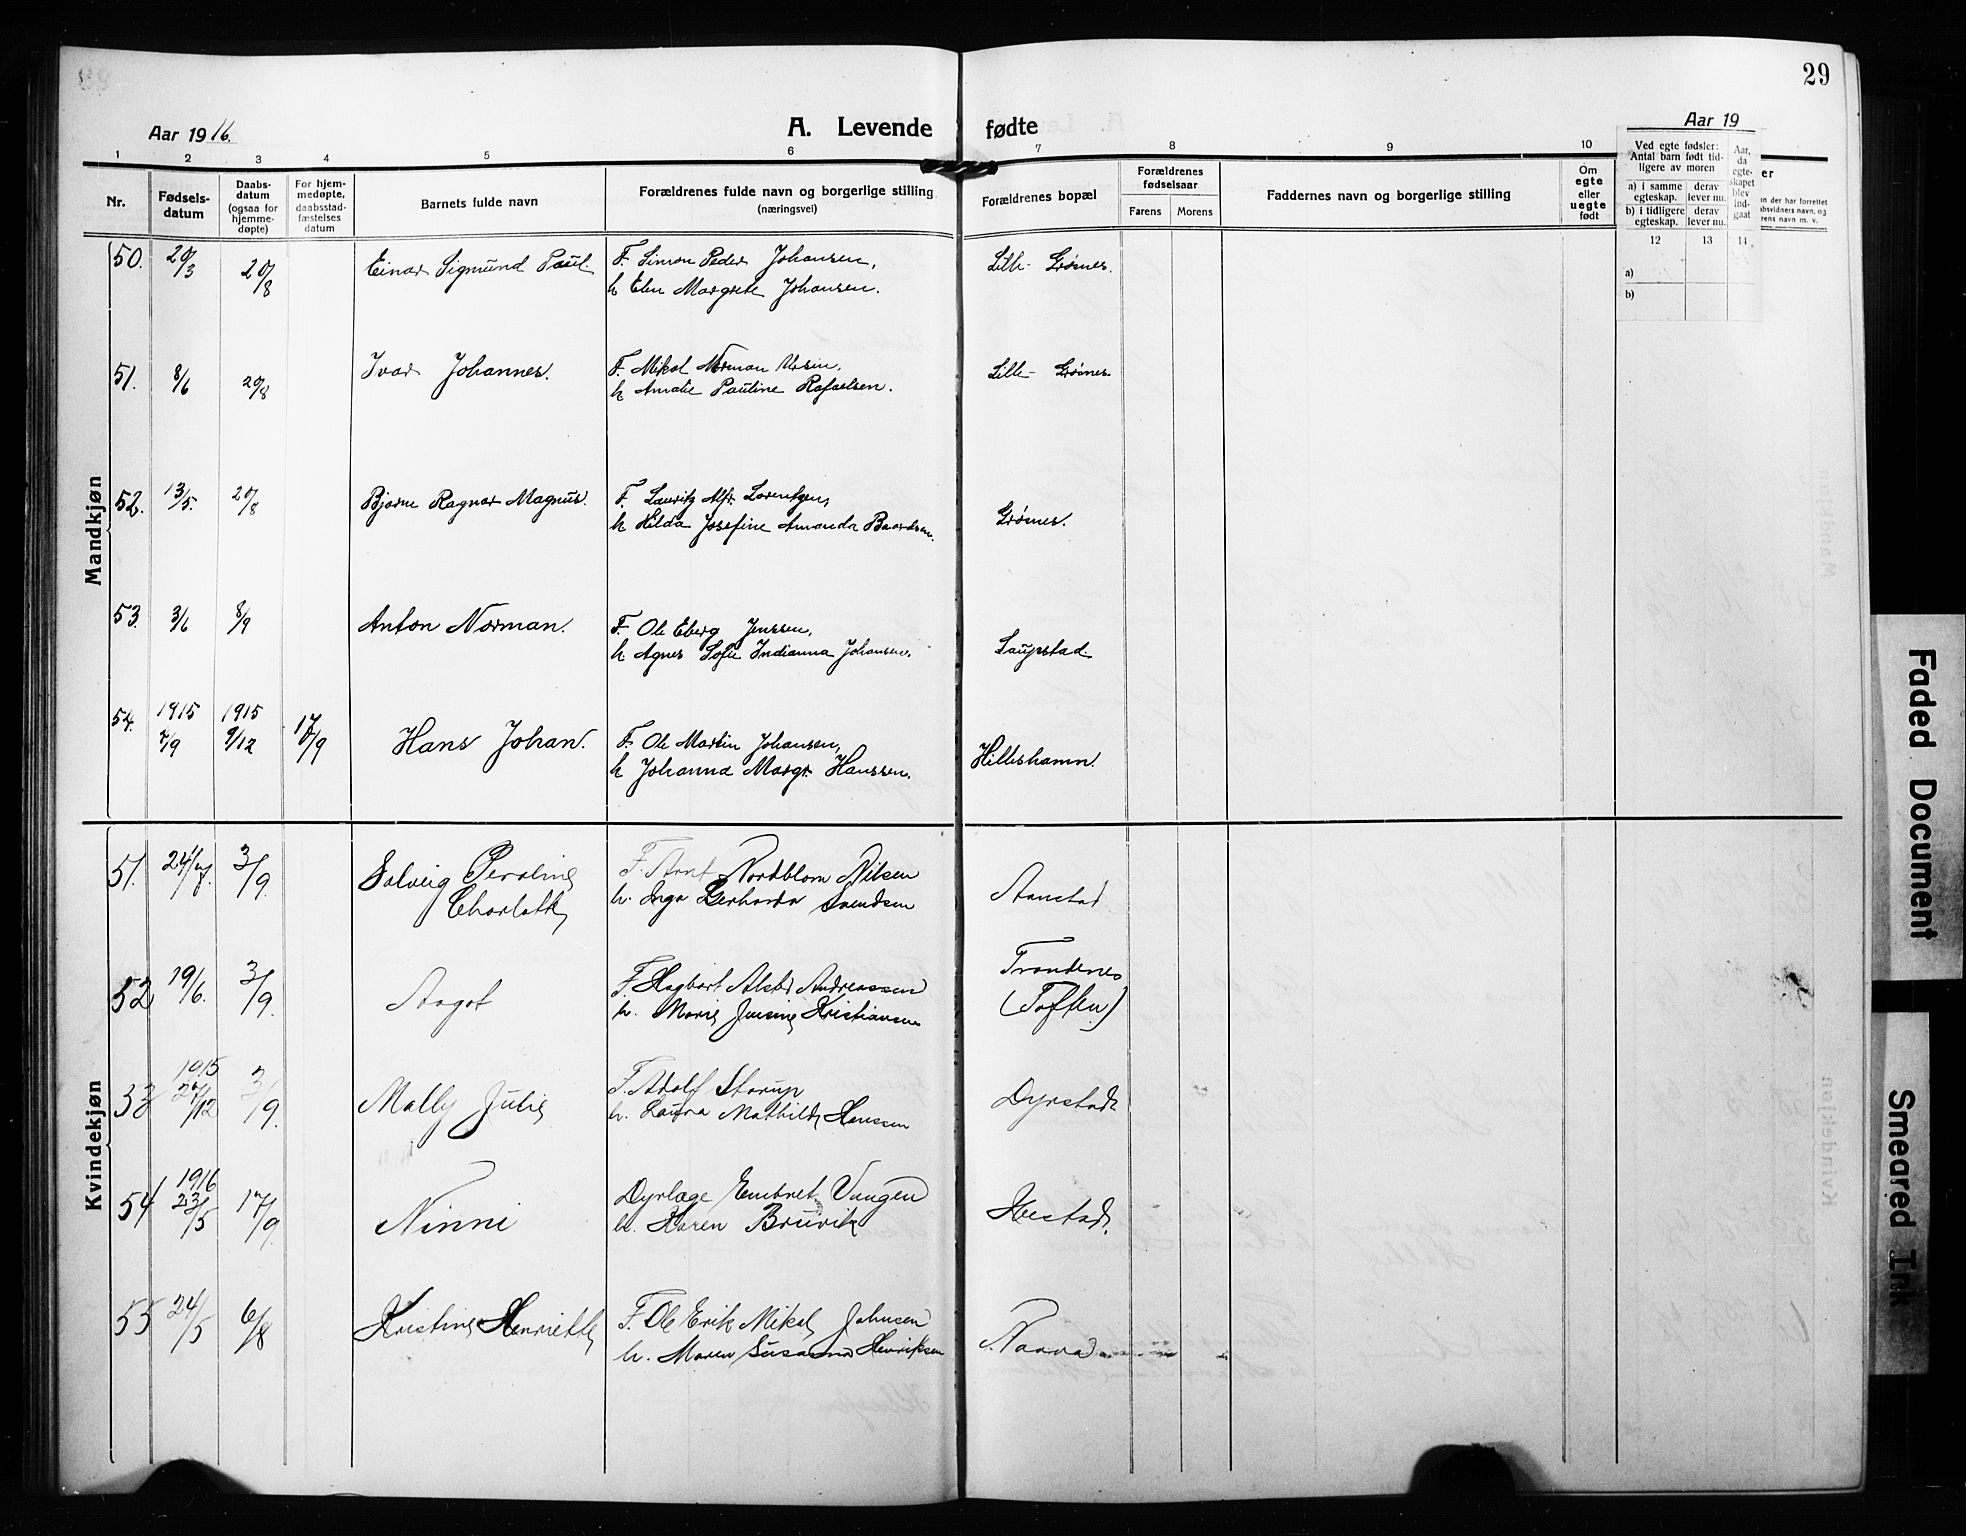 29
Aar 1916.
A. Levende fødte
Aar 19
1 2 3 4 5 6 7 8 9 10
Nr.
Fødsels-
datum
Daabs-
datum
(ogsaa for
hjemme-
døpte)
For hjem-
medøpte,
daabsstad-
fæstelses
datum
Barnets fulde navn
Forældrenes fulde navn og borgerlige stilling
(næringsvei)
Forældrenes bopæl
Forældrenes
fødselsaar
Farens Morens
Faddernes navn og borgerlige stilling
Om
egte
eller
uegte
født
Ved egte fødsler:
Antal barn født tid-
ligere av moren
a) i samme
egteskap.
derav
lever nu.
b) i tidligere
egteskap.
derav
lever nu.
Aar,
da
egte-
skapet
blev
ind-
gaat
12 13 14
a)
b)
Mandkjøn
50. 20/3 20/8 Einar Sigmund Paul F. Simon Peder Johansen, Lille-Grøsnes.
h Elen Margrete Johansen.
51. 8/6 20/8 Ivar Johannes. F. Mikal Norman Ursin, Lille-Grøsnes.
h Amalie Pauline Rafaelsen.
52. 13/5. 20/8 Bjarne Ragnar Magnus. F. Lauritz Alfr. Lorentzen, Grøsnes.
h Hilda Josefine Amanda Baardsen.
53. 3/6 8/9 Anton Norman. F. Ole Eberg Jenssen, Laupstad.
h Agnes Sofie Indianna Johansen.
54. 1915 1915
7/9 9/12 17/9 Hans Johan. F. Ole Martin Johansen, Hilleshamn.
h Johanna Margr. Hanssen.
Kvindekjøn
51. 3/9. Solveig Peroline F. Arnt Nordblom Nilsen Aanstad
Charlotte h. Inga Gerharda Svendsen
52 19/6. 3/9. Aagot F. Hagbart Andreassen Trondenes
h. Marie Jensine Kristiansen (Toften)
53 1915
27/12 3/9. Mally Julie F. Adolf Storup Dyrstad
h. Laura Mathilde Hanssen
54 1916
23/5 17/9. Ninni Dyrlæge Embret Vangen Hestad
h. Karen Bruvik
55 24/5 6/8 Kristine Henriette F. Ole Erik Mikal Johnsen
h. Maren Susanna Henriksen
Faded Document
Smeared Ink